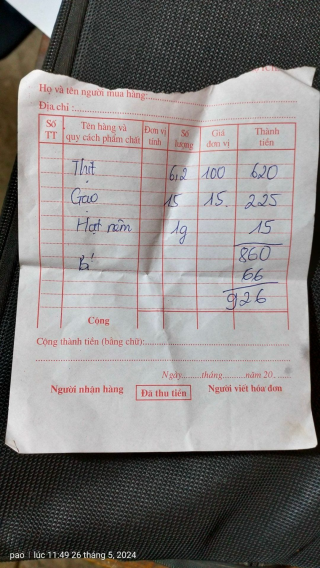 Họ và tên người mua hàng:
Địa chỉ :
Số TT Tên hàng và quy cách phẩm chất Đơn vị tính Số lượng Giá đơn vị Thành tiền
Thịt 6,2 100 620
Gạo 15 15. 225
Hạt nêm 1g 15
860
Bí 66
926
Cộng
Cộng thành tiền (bằng chữ):
Ngày.........tháng.........năm 20......
Người nhận hàng Đã thu tiền Người viết hóa đơn
pao | lúc 11:49 26 tháng 5, 2024